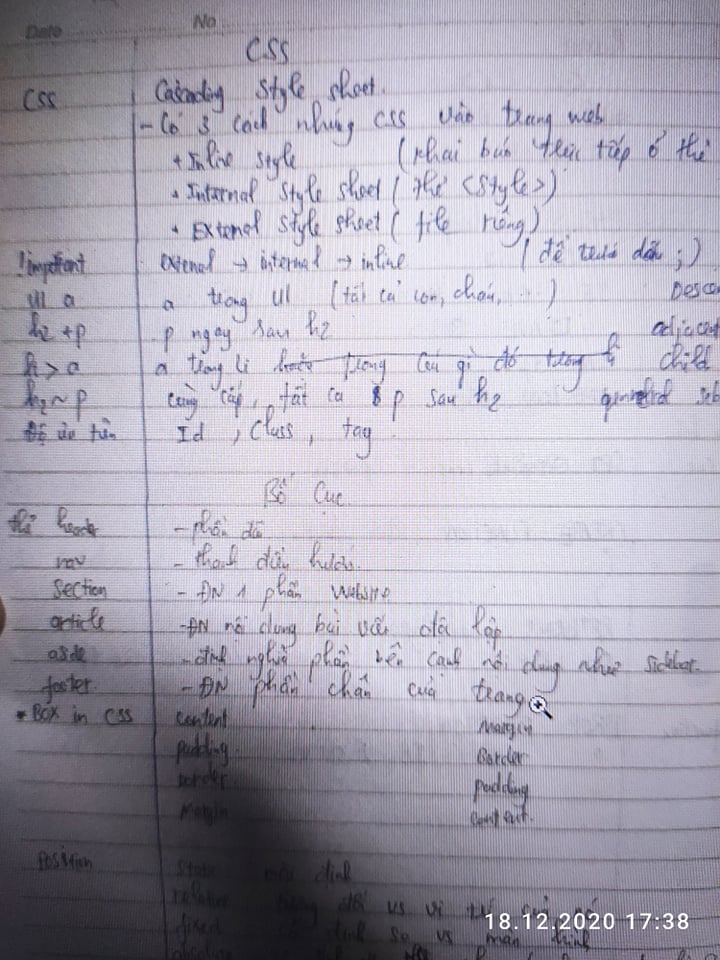 Date No
CSS
CSS Cascading Style sheet.
- Có 3 cách nhúng CSS vào trang web
+ Inline style (khai báo trực tiếp ở thẻ
+ Internal style sheet (thẻ <style>)
+ External style sheet (file riêng)
!important external → internal → inline (để trước dấu ;)
ul a a trong ul (tất cả con, cháu, ...) Desce
h2 + p p ngay sau h2 adjacent
h > a a trong li hoặc trong cái gì đó trong child
h2 ~ p cùng cấp, tất cả p sau h2 general sib
Độ ưu tiên Id, Class, tag
Bố Cục
thẻ header - phần đầu
nav - thanh điều hướng
section - ĐN 1 phần website
article - ĐN nội dung bài viết độc lập
aside - định nghĩa phần bên cạnh nội dung như sidebar.
footer - ĐN phần chân của trang
* Box in CSS content Margin
padding Border
border padding
Margin content.
Position static mặc định
relative tương đối vs vị trí
fixed cố định so vs màn hình
absolute
18.12.2020 17:38